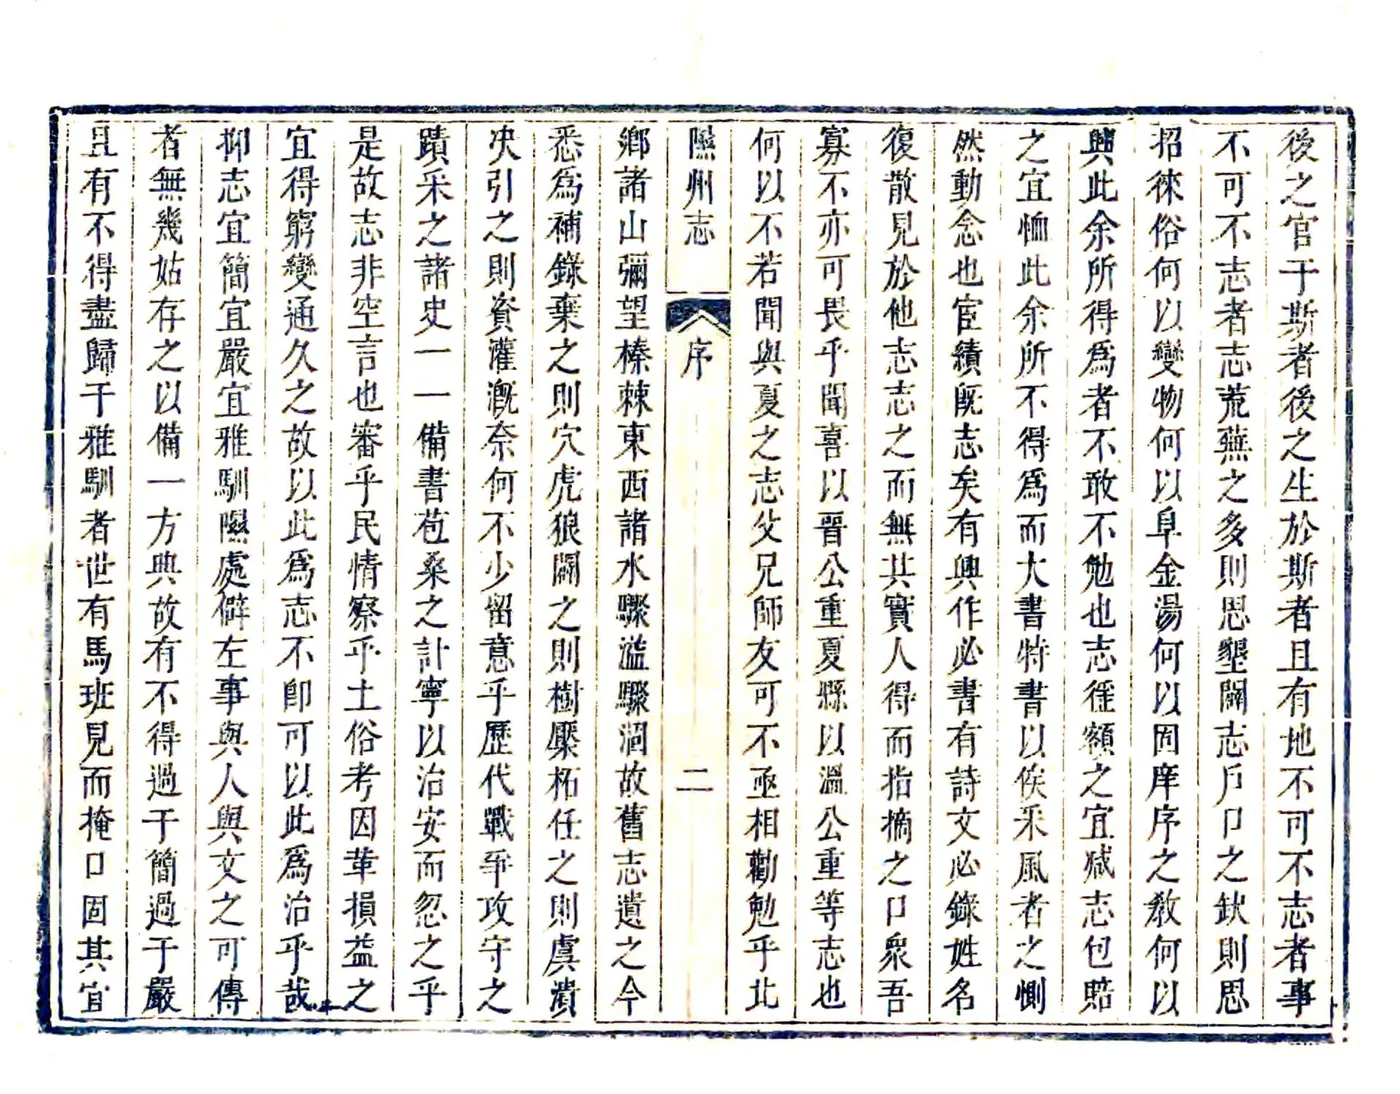 後之官于斯者後之生於斯者且有地不可不志者事
不可不志者志荒蕪之多則思墾闢志戶口之缺則思
招徠俗何以變物何以阜金湯何以固庠序之教何以
興此余所得爲者不敢不勉也志徭額之宜减志包賠
之宜恤此余所不得爲而大書特書以俟采風者之惻
然動念也宦績旣志矣有興作必書有詩文必錄姓名
復散見於他志志之而無其實人得而指摘之口衆吾
寡不亦可畏乎聞喜以晉公重夏縣以溫公重等志也
何以不若聞與夏之志父兄師友可不亟相勸勉乎北
隰州志 序 二
鄉諸山彌望榛棘東西諸水驟溢驟涸故舊志遺之今
悉爲補錄棄之則穴虎狼闢之則樹檿柘任之則虞潰
决引之則資灌漑奈何不少留意乎歷代戰爭攻守之
蹟采之諸史一一備書苞桑之計寧以治安而忽之乎
是故志非空言也審乎民情察乎土俗考因革損益之
宜得窮變通久之故以此爲志不卽可以此爲治乎哉
抑志宜簡宜嚴宜雅馴隰處僻左事與人與文之可傳
者無幾姑存之以備一方典故有不得過于簡過于嚴
且有不得盡歸于雅馴者世有馬班見而掩口固其宜